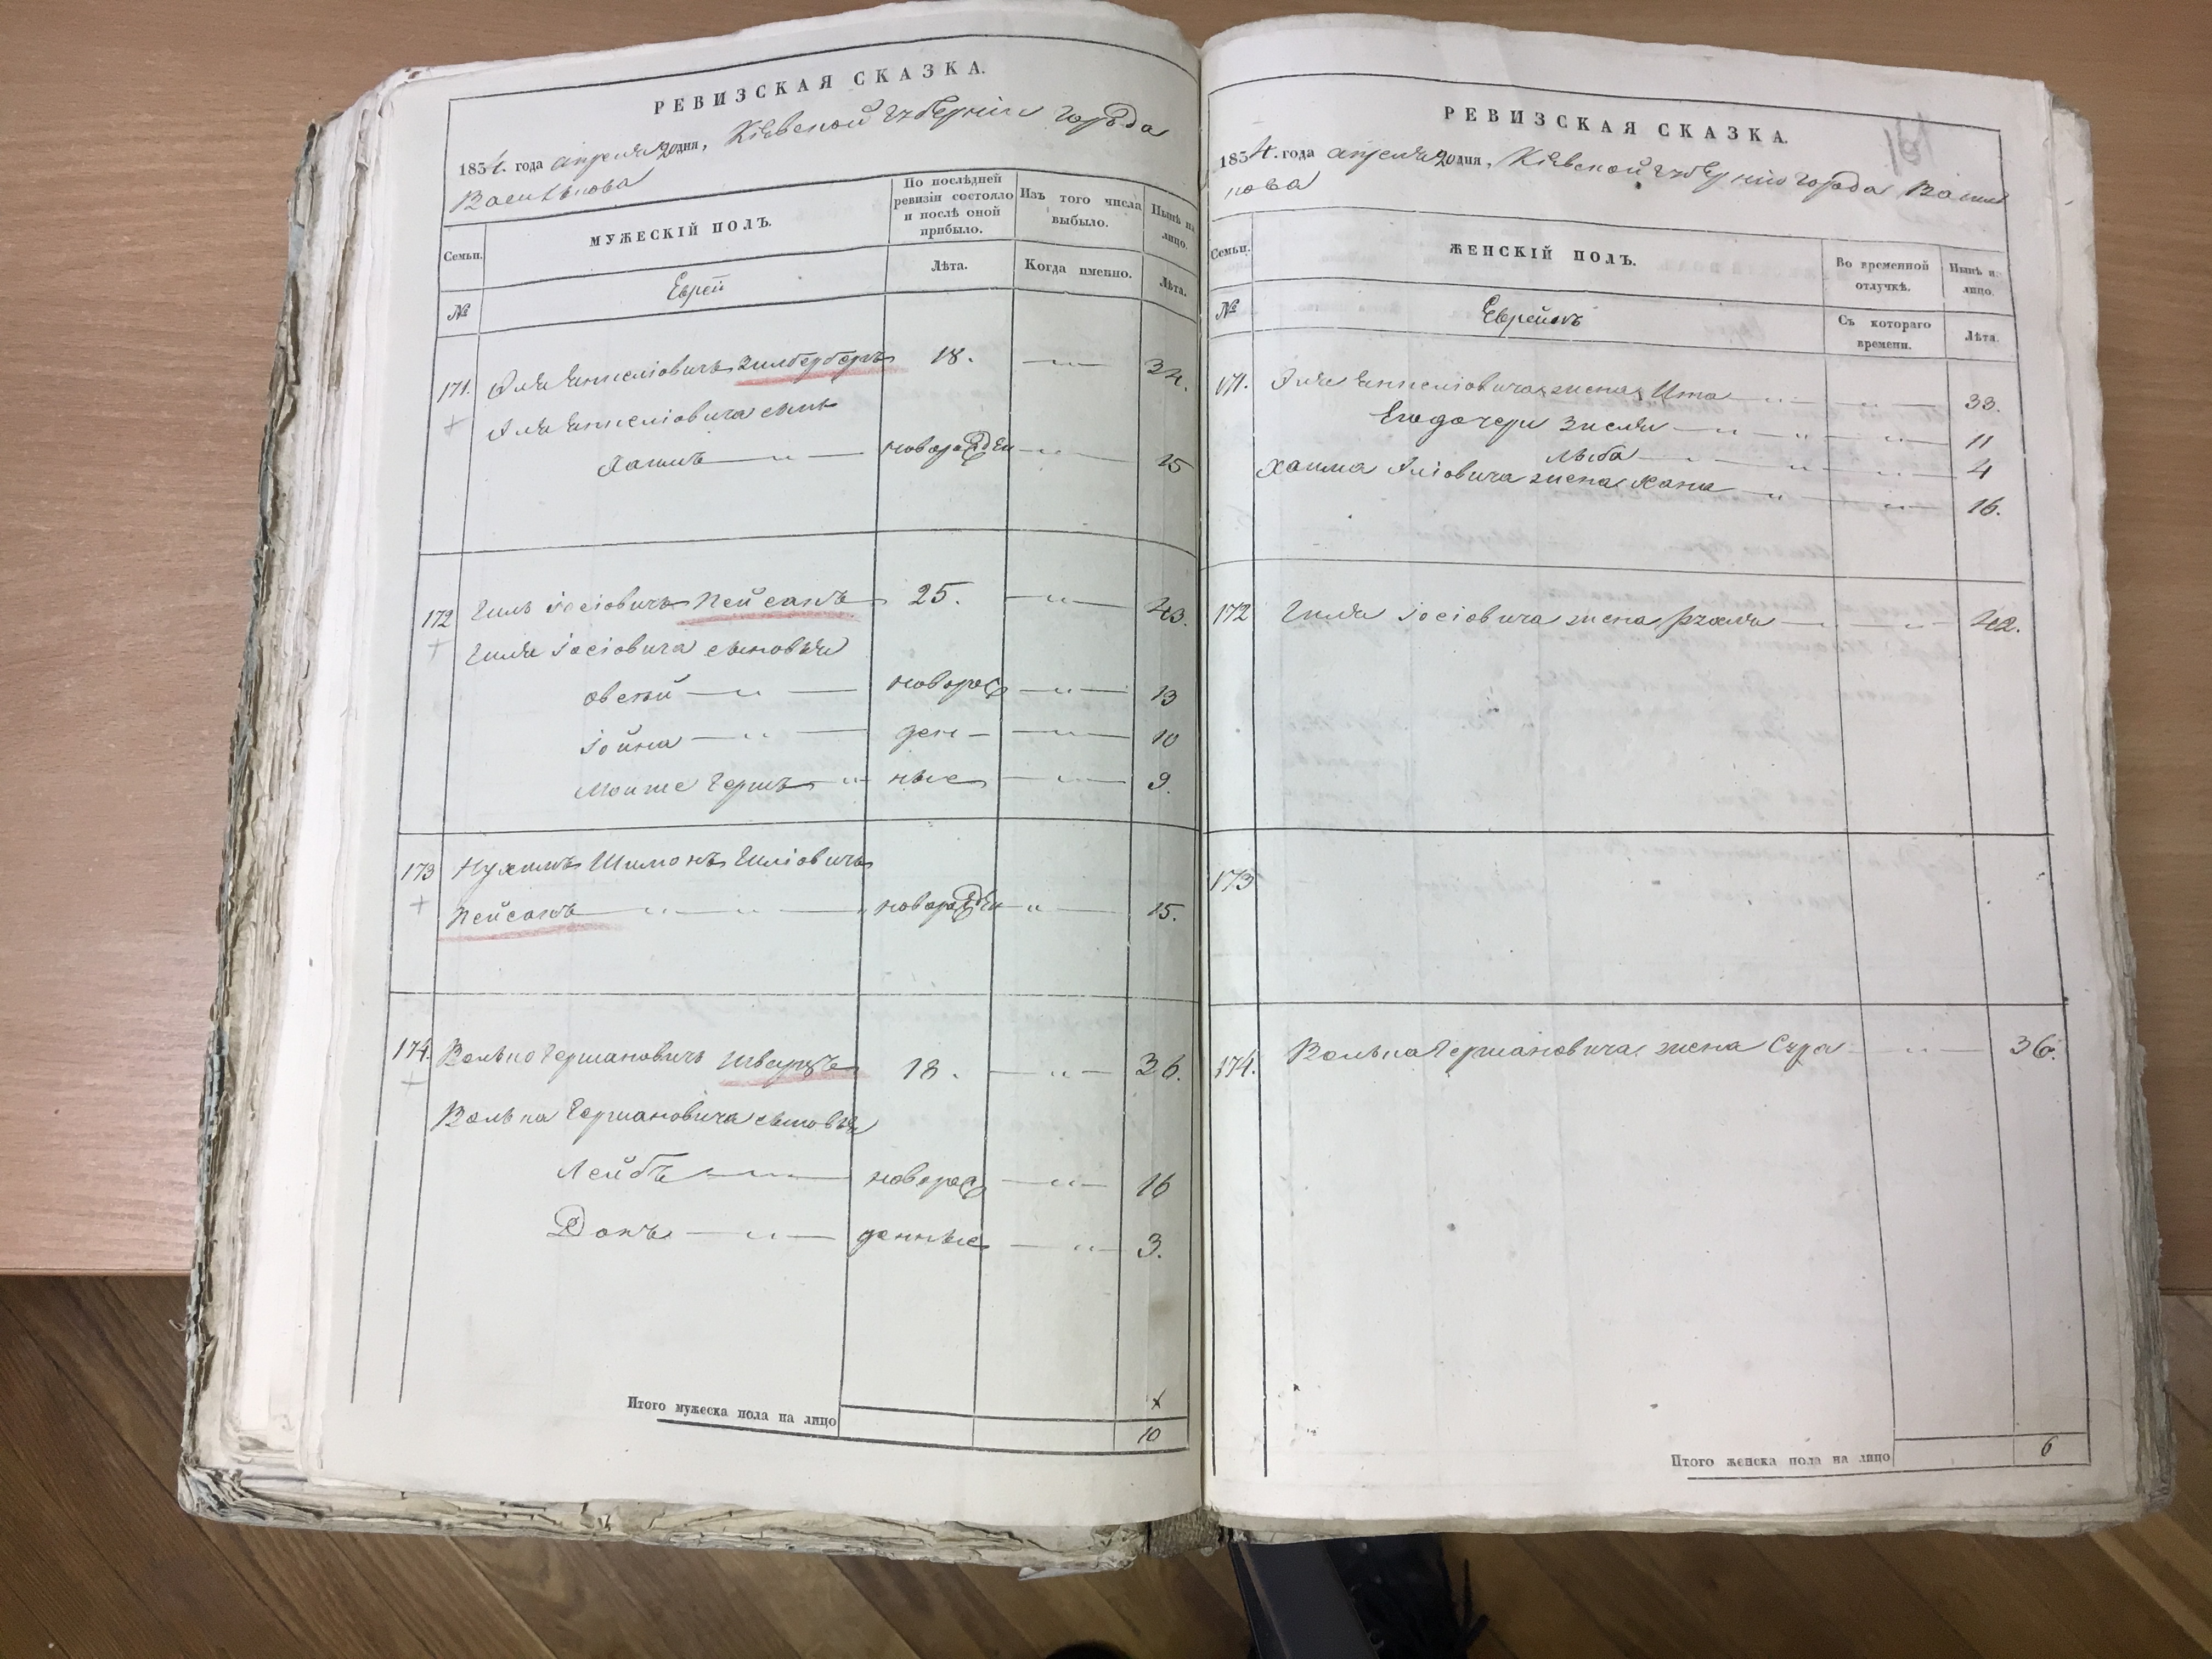 РЕВИЗСКАЯ СКАЗКА.
1854. года апреля 20 дня, Кіевской губерніи города
Василькова
Семьи.
МУЖЕСКІЙ ПОЛЪ.
По послѣдней
ревизіи состояло
и послѣ оной
прибыло.
Изъ того числа
выбыло.
Нынѣ на
лицо.
№
Еврей
Лѣта.
Когда именно.
Лѣта.
171.
18.
34.
сынъ
Хаимъ
новорожден
15
172
Гиль Іосіовичъ Пейсакъ
25.
43.
Гиля Іосіовича сыновья
Овсей
новорож
13
Іойна
ден
10
Мошке Гершъ
ные
9.
173
Нухимъ Шимонъ Гиліовичъ
Пейсакъ
новорожден
15.
174.
Волько Гершановичъ Шварцъ
18.
36.
Волька Гершановича сыновья
Лейбъ
новорож
16
Донъ
денные
3.
Итого мужеска пола на лицо
10
РЕВИЗСКАЯ СКАЗКА.
1854. года апреля 20 дня, Кіевской губерніи города Василь
кова
Семьи.
ЖЕНСКІЙ ПОЛЪ.
Во временной
отлучкѣ.
Нынѣ н.
лицо.
№
Евреекъ
Съ котораго
времени.
Лѣта.
171.
жена Ита
33.
Его дочери Зисля
11
Лыба
4
Хаима Иліовича жена Хана
16.
172
Гиля Іосіовича жена Рухля
42.
173
174.
Волька Гершановича жена Сура
36.
Итого женска пола на лицо
6